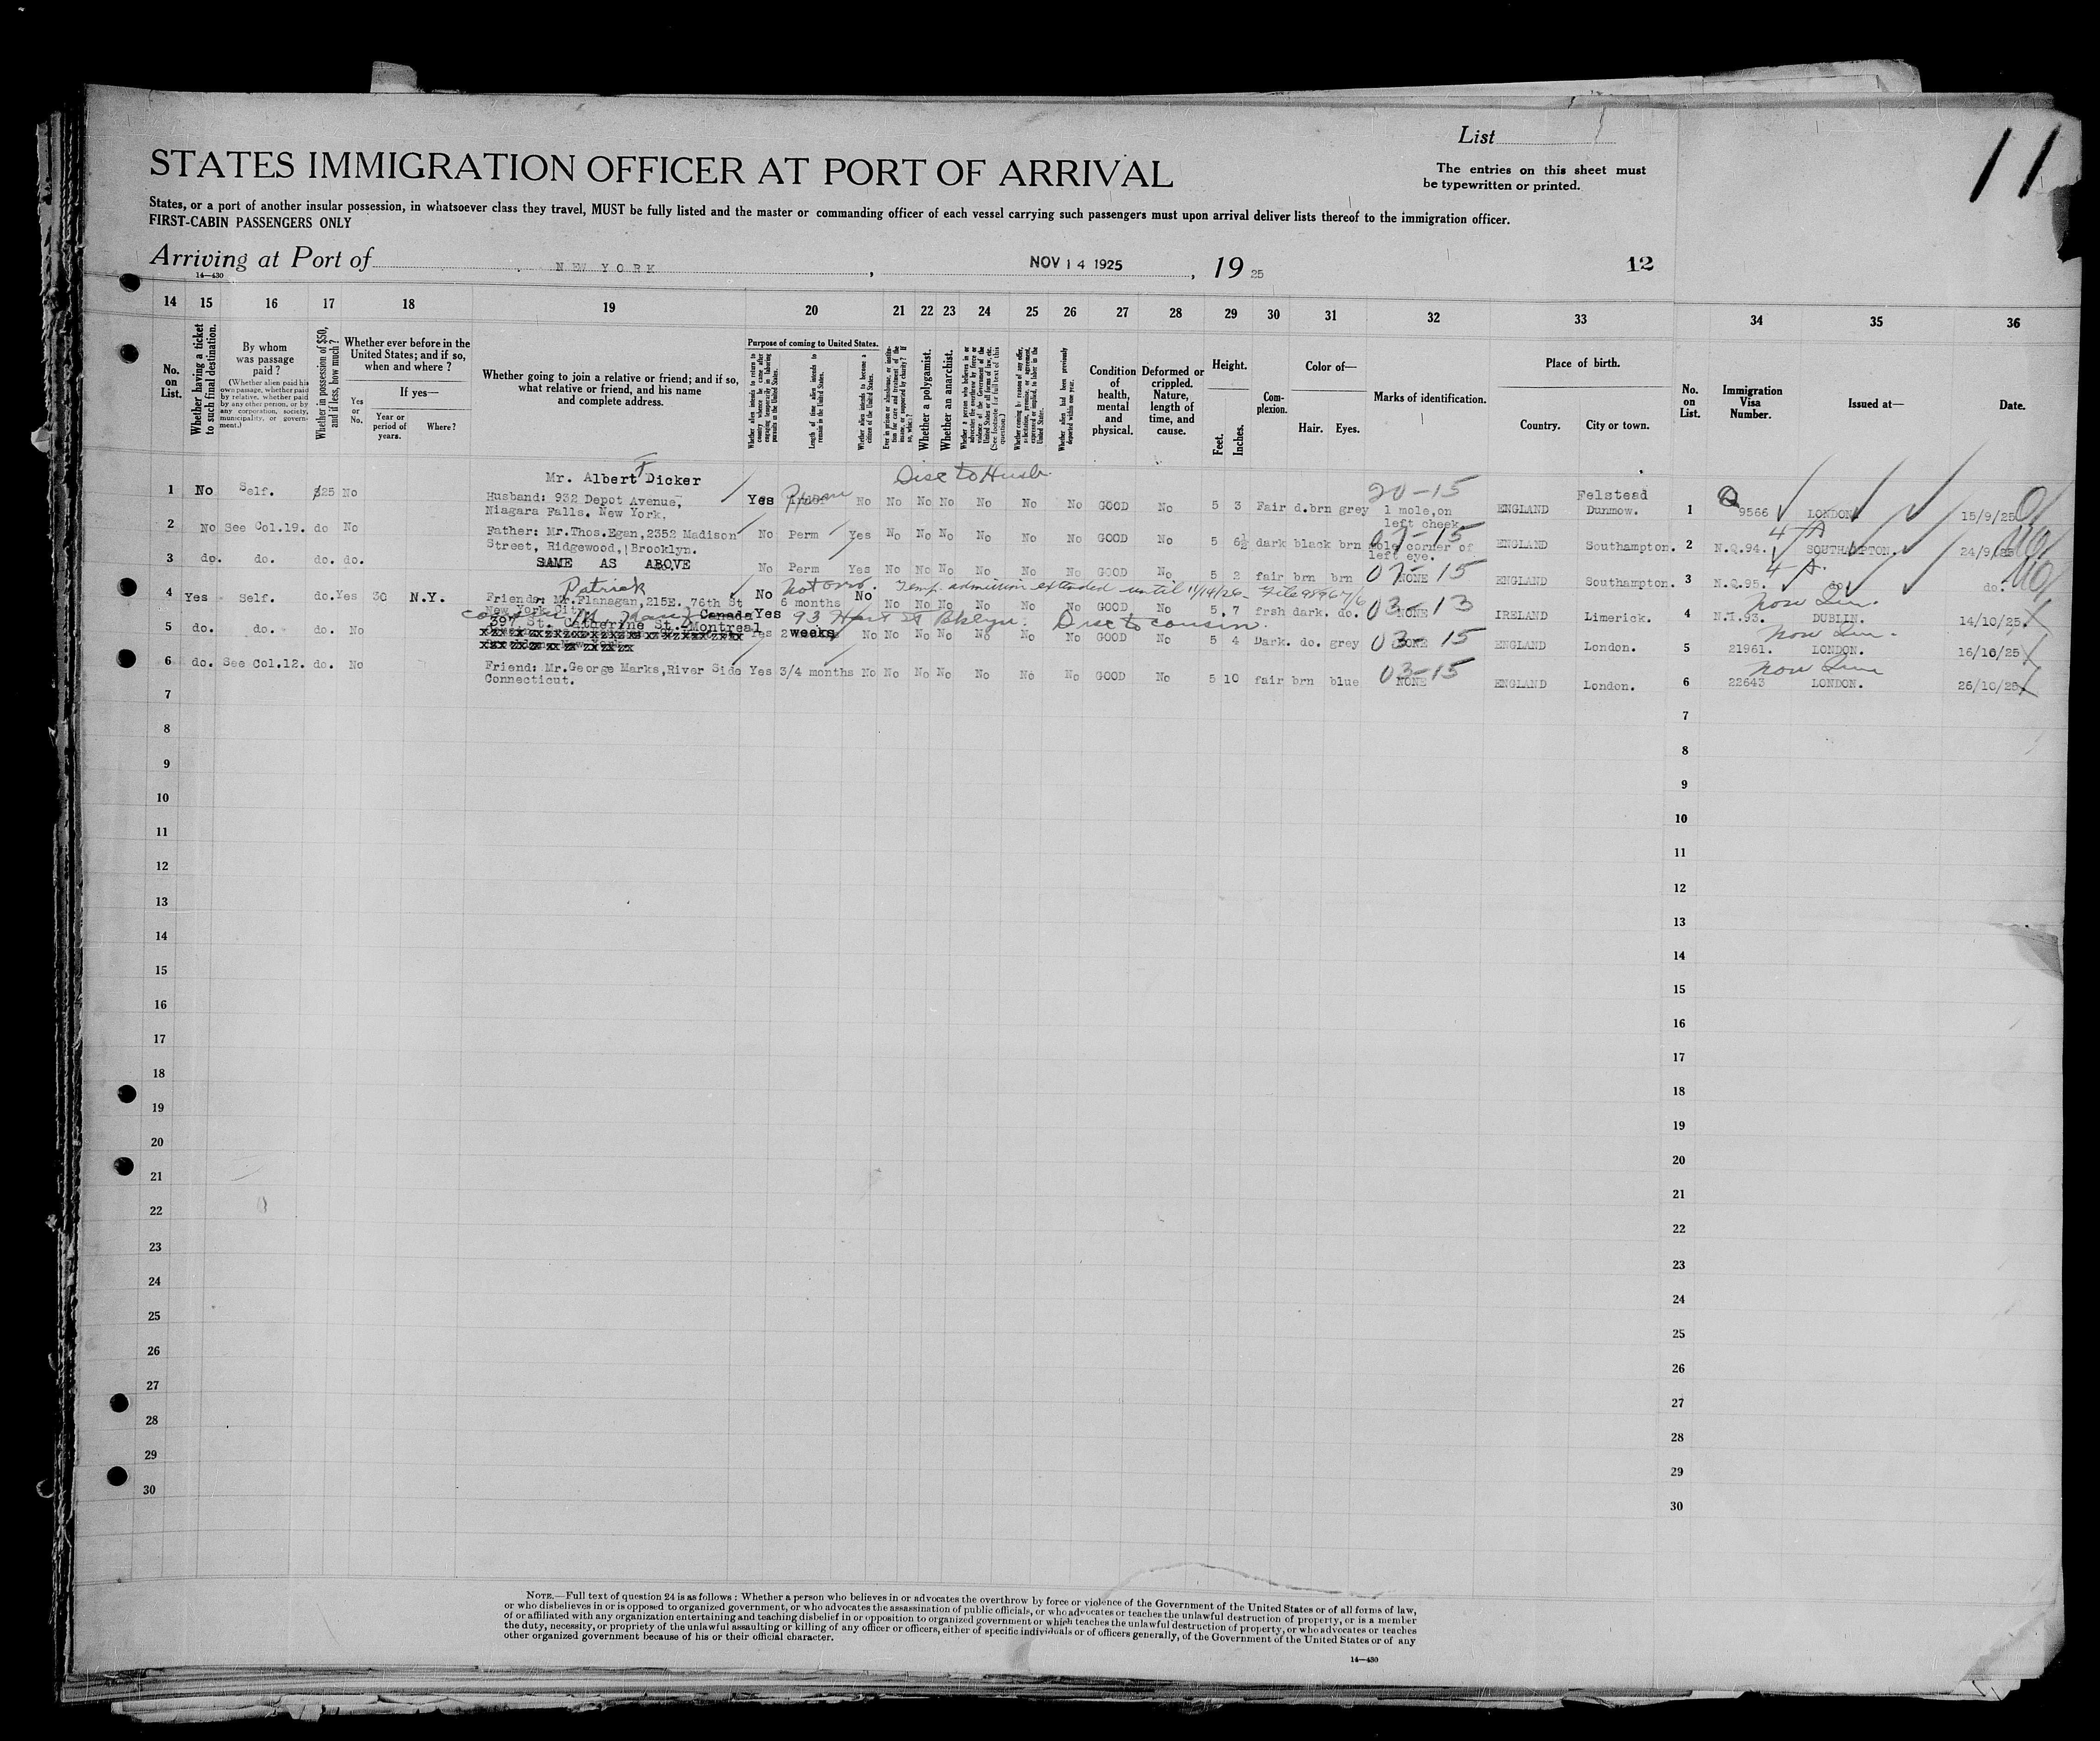 11
List
STATES IMMIGRATION OFFICER AT PORT OF ARRIVAL
The entries on this sheet must
be typewritten or printed.
States, or a port of another insular possession, in whatsoever class they travel, MUST be fully listed and the master or commanding officer of each vessel carrying such passengers must upon arrival deliver lists thereof to the immigration officer.
FIRST-CABIN PASSENGERS ONLY
Arriving at Port of NEW YORK, NOV 14 1925, 19 25
12
14—430
14 15 16 17 18 19 20 21 22 23 24 25 26 27 28 29 30 31 32 33 34 35 36
No. on List.
Whether having a ticket to such final destination.
By whom was passage paid?
(Whether alien paid his own passage, whether paid by relative, whether paid by any other person, or by any corporation, society, municipality, or government.)
Whether in possession of $50, and if less, how much?
Whether ever before in the United States; and if so, when and where?
Yes or No.
If yes—
Year or period of years.
Where?
Whether going to join a relative or friend; and if so, what relative or friend, and his name and complete address.
Purpose of coming to United States.
Whether alien intends to return to country whence he came after engaging temporarily in laboring pursuits in the United States.
Length of time alien intends to remain in the United States.
Whether alien intends to become a citizen of the United States.
Ever in prison or almshouse, or institution for care and treatment of the insane, or supported by charity? If so, which?
Whether a polygamist.
Whether an anarchist.
Whether a person who believes in or advocates the overthrow by force or violence of the Government of the United States or all forms of law, etc. (See footnote for full text of this question.)
Whether coming by reason of any offer, solicitation, promise, or agreement, expressed or implied, to labor in the United States.
Whether alien had been previously deported within one year.
Condition of health, mental and physical.
Deformed or crippled. Nature, length of time, and cause.
Height.
Feet. Inches.
Complexion.
Color of—
Hair. Eyes.
Marks of identification.
Place of birth.
Country. City or town.
No. on List.
Immigration Visa Number.
Issued at—
Date.
Mr. Albert F Dicker Disc to Husb 20-15 Felstead
1 No Self. $25 No Husband: 932 Depot Avenue, Yes Perm No No No No No No No GOOD No 5 3 Fair d.brn grey 1 mole,on ENGLAND Dunmow. 1 9566 LONDON 15/9/25
Niagara Falls. New York. left cheek
2 No See Col.19. do No Father: Mr.Thos.Egan,2352 Madison No Perm Yes No No No No No No GOOD No 5 6½ dark black brn mole corner of ENGLAND Southampton. 2 N.Q.94. SOUTHAMPTON. 24/9/25
Street, Ridgewood, Brooklyn. left eye. 07-15 4 A
3 do. do. do. do. SAME AS ABOVE No Perm Yes No No No No No No GOOD No 5 2 fair brn brn NONE 07-15 ENGLAND Southampton. 3 N.Q.95. do. do. 4 A.
Patrick Not over. Temp. admission extended until 11/14/26 - File 98967/6 03-13
4 Yes Self. do. Yes 30 N.Y. Friend: Mr.Flanagan,215E. 76th St No 6 months No No No No No No No GOOD No 5 7 frsh dark. do. NONE IRELAND Limerick. 4 N.I.93. DUBLIN. 14/10/25
New York City. Canada Yes
93 Hart St Bklyn. Disc to cousin.
397 St. Catherine St. Montreal
5 do. do. do. No Yes 2 weeks No No No No No No No GOOD No 5 4 Dark. do. grey NONE 03-15 ENGLAND London. 5 21961. LONDON. 16/10/25
6 do. See Col.12. do. No Friend: Mr.George Marks,River Side Yes 3/4 months No No No No No No No GOOD No 5 10 fair brn blue NONE 03-15 ENGLAND London. 6 22643 LONDON. 26/10/25
Connecticut.
7 7
8 8
9 9
10 10
11 11
12 12
13 13
14 14
15 15
16 16
17 17
18 18
19 19
20 20
21 21
22 22
23 23
24 24
25 25
26 26
27 27
28 28
29 29
30 30
NOTE.—Full text of question 24 is as follows: Whether a person who believes in or advocates the overthrow by force or violence of the Government of the United States or of all forms of law,
or who disbelieves in or is opposed to organized government, or who advocates the assassination of public officials, or who advocates or teaches the unlawful destruction of property, or is a member
of or affiliated with any organization entertaining and teaching disbelief in or opposition to organized government or which teaches the unlawful destruction of property, or who advocates or teaches
the duty, necessity, or propriety of the unlawful assaulting or killing of any officer or officers, either of specific individuals or of officers generally, of the Government of the United States or of any
other organized government because of his or their official character.
14—430